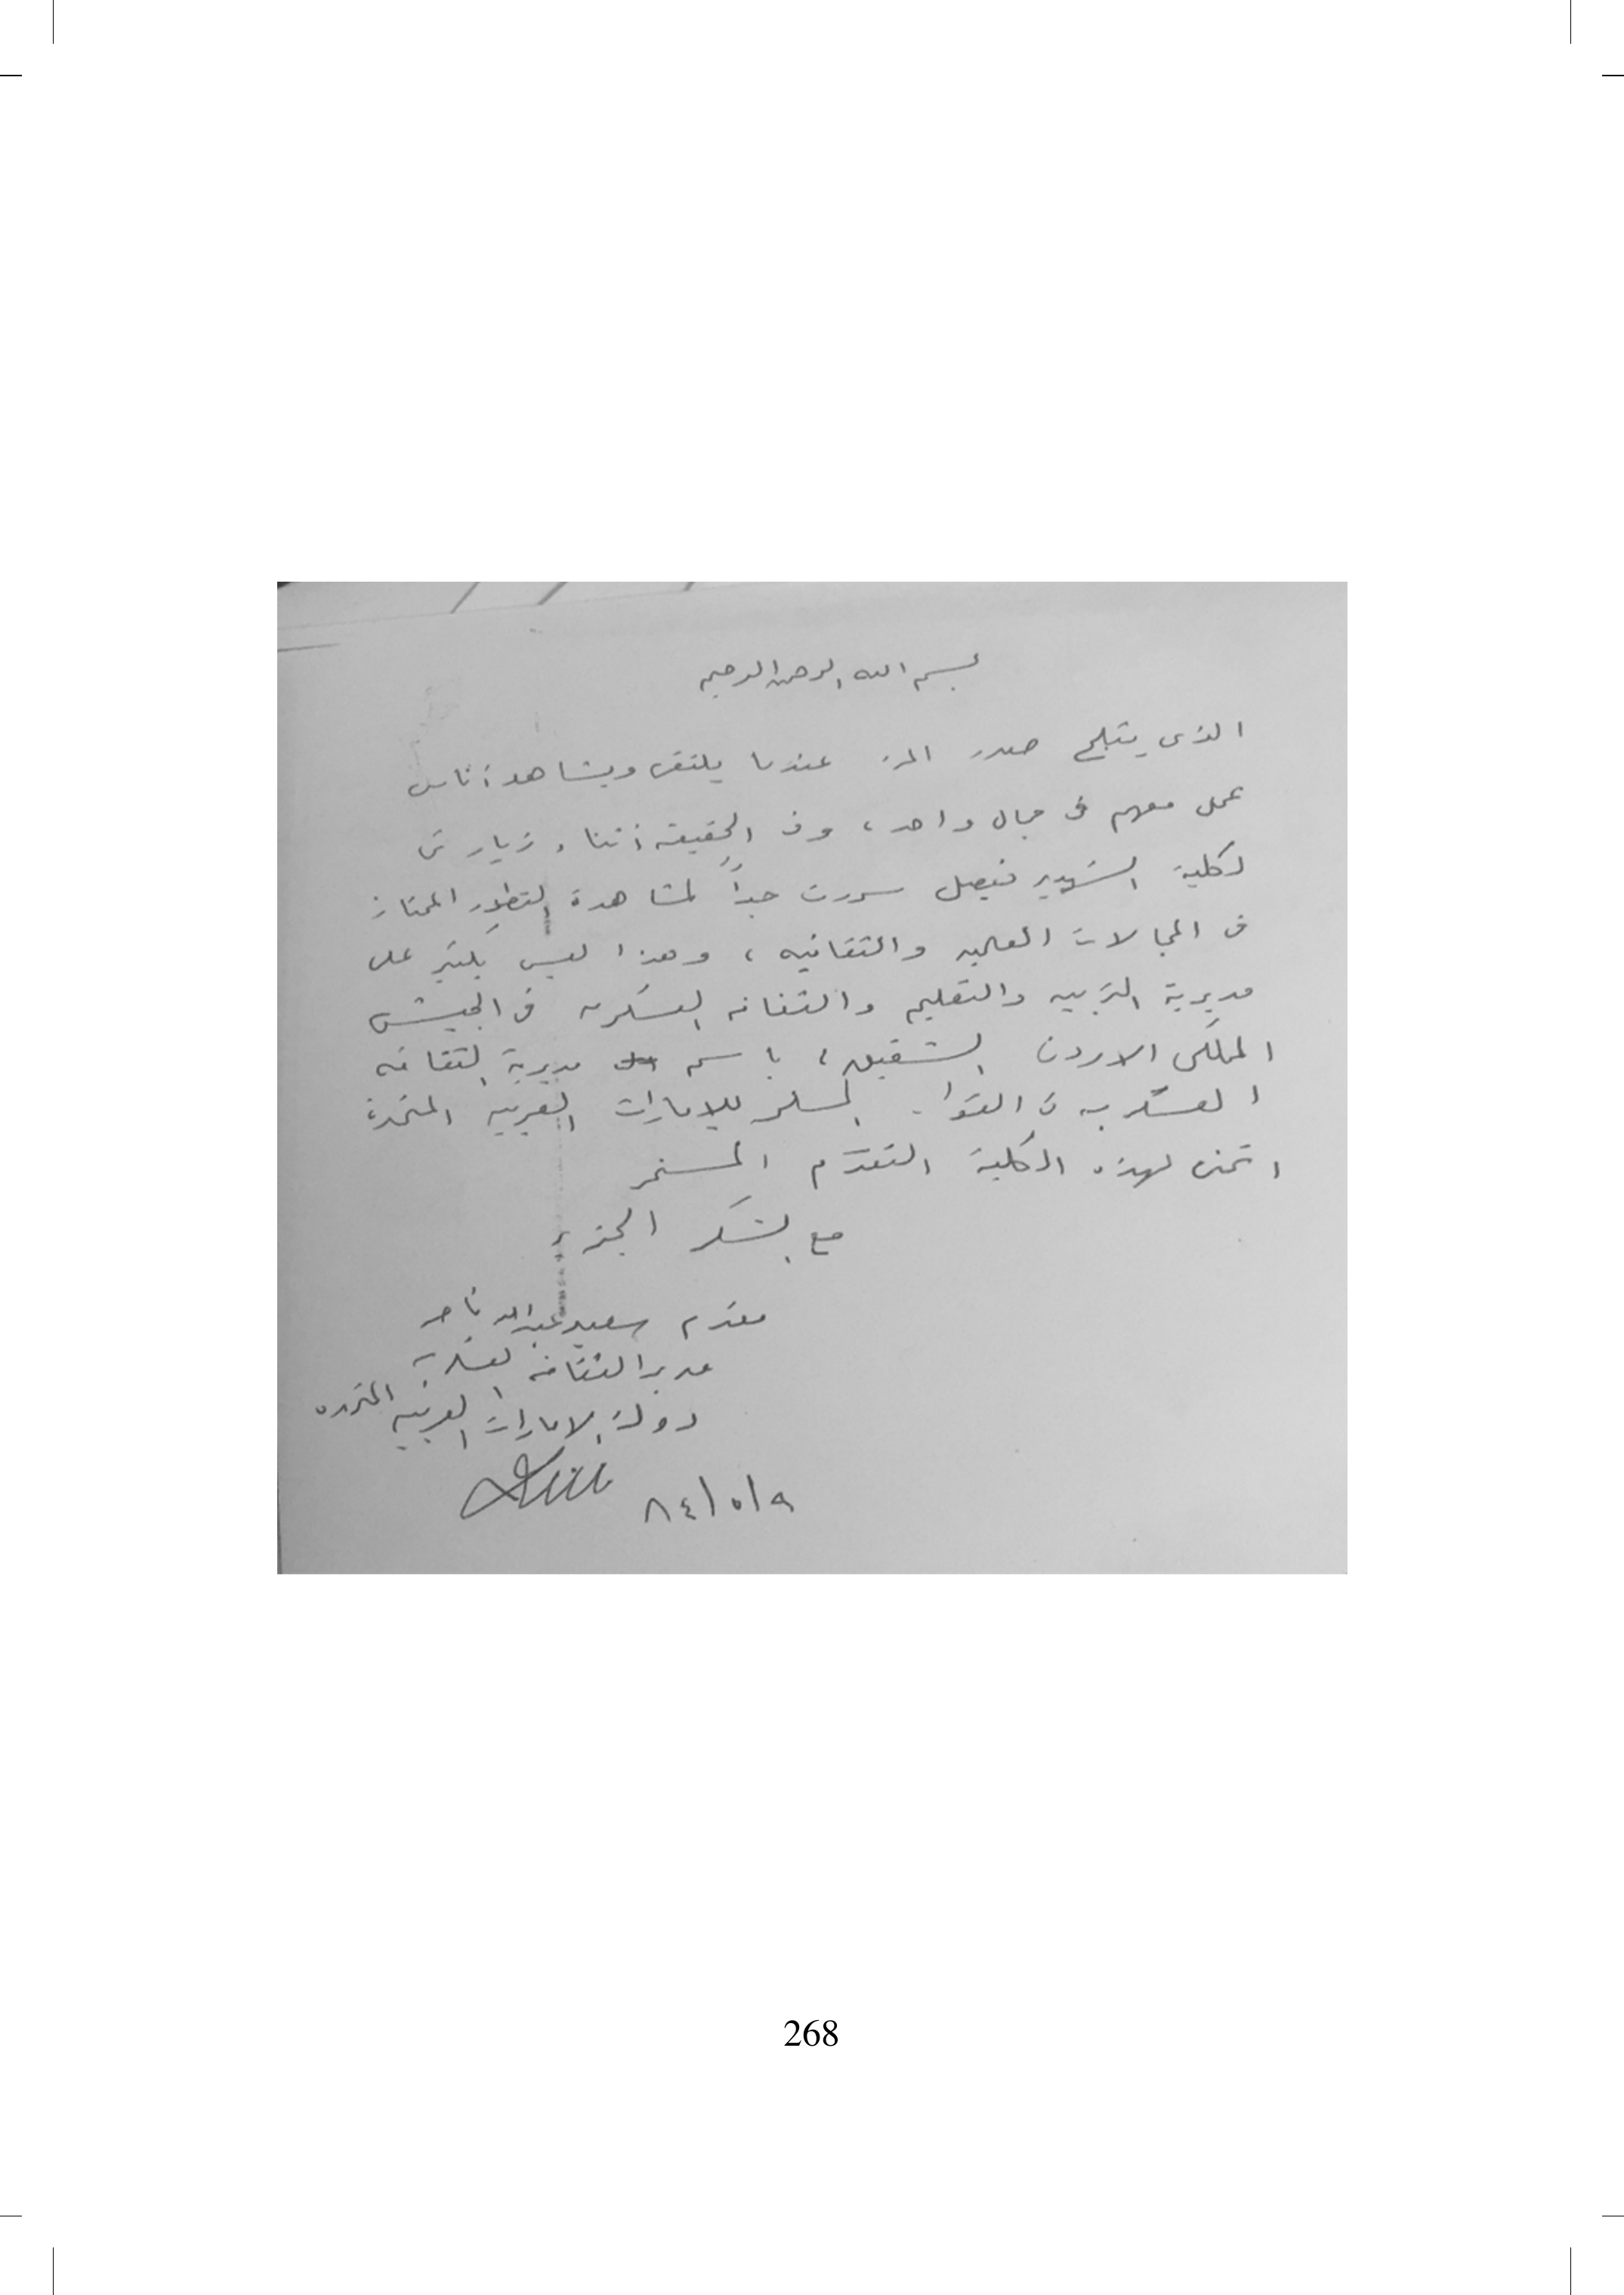 بسم الله الرحمن الرحيم
الذى يثلج صدر المرء عندما يلتقى ويشاهد أناس
عمل معهم فى مجال واحد، وفى الحقيقة أثناء زيارتى
لكلية الشهيد فيصل سررت جداً لمشاهدة التطور الممتاز
فى المجالات العلميه والثقافيه، وهذا ليس بكثير على
مديرية التربيه والتعليم والثقافه العسكريه فى الجيش
الملكى الاردنى الشقيق، باسم مديرية الثقافه
العسكريه فى القوات المسلحه للامارات العربيه المتحدة
اتمنى لهذه الكلية التقدّم المستمر
مع الشكر الجزيل
مقدم سعيد عبدالله ناصر
مدير الثقافه العسكريه
دولة الامارات العربيه المتحده
٨٤/٥/٩
268